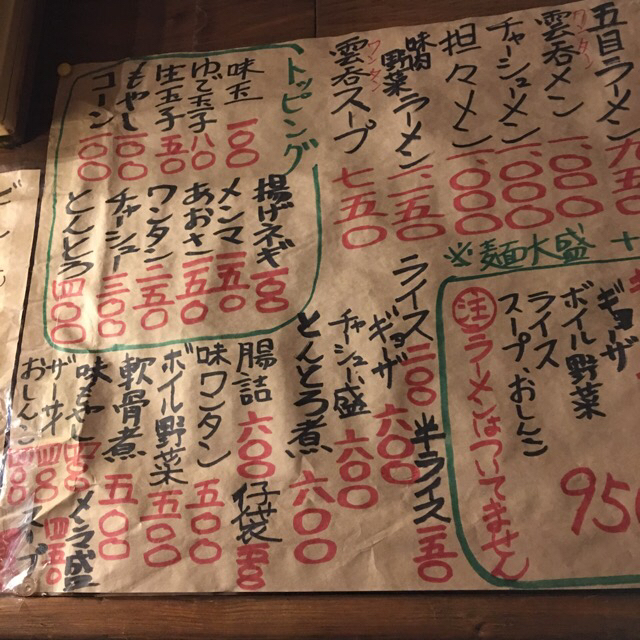 五目ラーメン
雲呑メン
ワンタン
一、〇五〇
チャーシューメン
一、〇〇〇
担々メン
一、〇〇〇
味肉野菜ラーメン
一、一五〇
雲呑スープ
ワンタン
七五〇
※麺大盛
トッピング
味玉
一〇〇
ゆで玉子
八〇
生玉子
五〇
もやし
一〇〇
コーン
一〇〇
揚げネギ
一〇〇
メンマ
一五〇
あおさ
一五〇
ワンタン
二五〇
チャーシュー
三〇〇
とんとろ
四〇〇
ギョーザ
ボイル野菜
ライス
スープ、おしんこ
950
注 ラーメンはついてません
ライス
二〇〇
半ライス
一五〇
ギョーザ
六〇〇
チャーシュー盛
六〇〇
とんとろ煮
六〇〇
腸詰
六〇〇
仔袋
味ワンタン
五〇〇
ボイル野菜
五〇〇
軟骨煮
五〇〇
メンマ盛
四五〇
ザーサイ
四〇〇
おしんこ